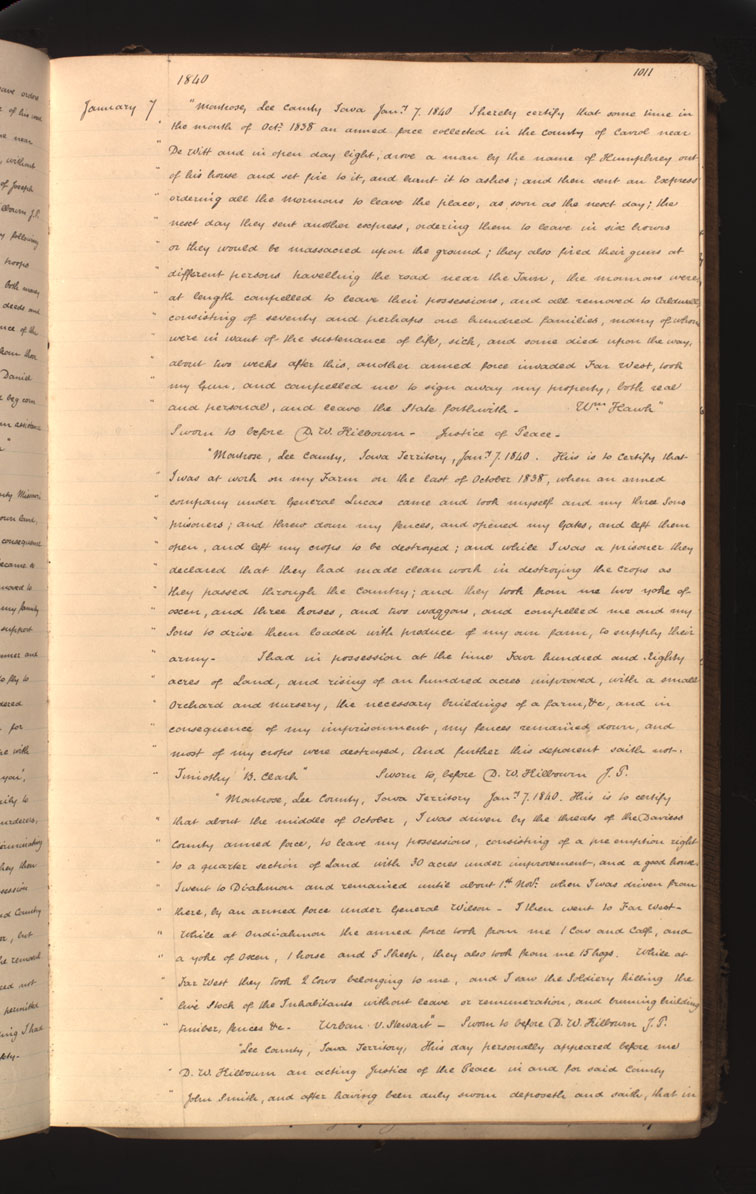 1840
1011
January 7
"Montrose, Lee County Iowa Jany. 7. 1840 I hereby certify that some time in
" the month of Octr. 1838 an armed force collected in the County of Carol near
" De Witt and in open day light, drove a man by the name of Humphrey out
" of his house and set fire to it, and burnt it to ashes; and then sent an Express
" ordering all the Mormons to leave the place, as soon as the next day; the
" next day they sent another express, ordering them to leave in six hours
" or they would be massacred upon the ground; they also fired their guns at
" different persons travelling the road near the Town, the mormons were
" at length compelled to leave their possessions, and all removed to Caldwell
" consisting of seventy and perhaps one hundred families, many of whom
" were in want of the sustenance of life, sick, and some died upon the way,
" about two weeks after this, another armed force invaded Far West, took
" my Gun, and compelled me to sign away my property, both real
" and personal, and leave the State forthwith - Wm Hawk"
Sworn to before D. W. Kilbourn - Justice of Peace -
"Montrose, Lee County, Iowa Territory, Jany. 7. 1840. This is to certify that
" I was at work on my Farm on the last of October 1838, when an armed
" company under General Lucas came and took myself and my three Sons
" prisoners; and threw down my fences, and opened my Gates, and left them
" open, and left my crops to be destroyed; and while I was a prisoner they
" declared that they had made clean work in destroying the crops as
" they passed through the Country; and they took from me two yoke of
" oxen, and three horses, and two waggons, and compelled me and my
" Sons to drive them loaded with produce of my own farm, to supply their
" army - I had in possession at the time Four hundred and Eighty
" acres of Land, and rising of an hundred acres improved, with a small
" Orchard and nursery, the necessary buildings of a farm, &c, and in
" consequence of my imprisonment, my fences remained down, and
" most of my crops were destroyed, And further this deponent saith not.
" Timothy B. Clark" Sworn to, before D. W. Kilbourn J. P.
" Montrose, Lee County, Iowa Territory Jany. 7. 1840. This is to certify
" that about the middle of October, I was driven by the threats of the Daviess
" County armed force, to leave my possessions, consisting of a pre emption right
" to a quarter section of Land with 30 acres under improvement, and a good house.
" I went to Diahmon and remained until about 1st Novr. when I was driven from
" there, by an armed force under General Wilson - I then went to Far West -
" While at Ondiahmon the armed force took from me 1 Cow and Calf, and
" a yoke of Oxen, 1 horse and 5 Sheep, they also took from me 15 hogs. While at
" Far West they took 2 Cows belonging to me, and I saw the Soldiery killing the
" live Stock of the Inhabitants without leave or remuneration, and burning building
" timber, fences &c. Urban V. Stewart" - Sworn to before D. W. Kilbourn, J. P.
"Lee County, Iowa Territory, This day personally appeared before me
" D. W. Kilbourn an acting Justice of the Peace in and for said County
" John Smith, and after having been duly sworn deposeth and saith, that in